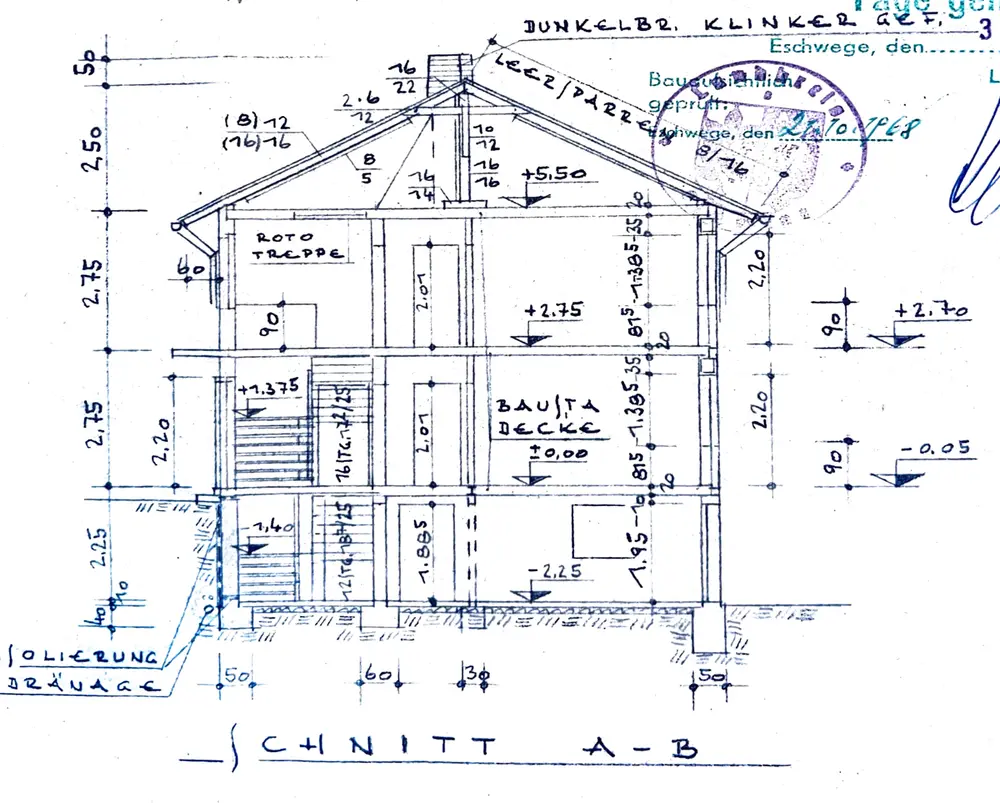 Tage
DUNKELBR. KLINKER GEF.
3
Eschwege, den
Bauaufsichtlich
geprüft:
Eschwege, den 21.10.1968
LEER/DARRE
8/16
50
16
22
2.6
12
(8)12
(16)16
10
12
8
5
16
16
16
14
2,50
+5,50
20
ROTO
TREPPE
35
60
2,75
2.01
1.385
2,20
90
+2.75
815
90
+2.70
20
35
+1.375
BAUSTA
DECKE
2,75
2,20
16 STG. 17²/25
2.01
1.385
2.20
±0,00
815
90
-0.05
20
10
-1,40
2.25
12 STG. 18⁷/25
1.885
1.95
-2,25
10
40
ISOLIERUNG
DRÄNAGE
50
60
30
50
SCHNITT A-B